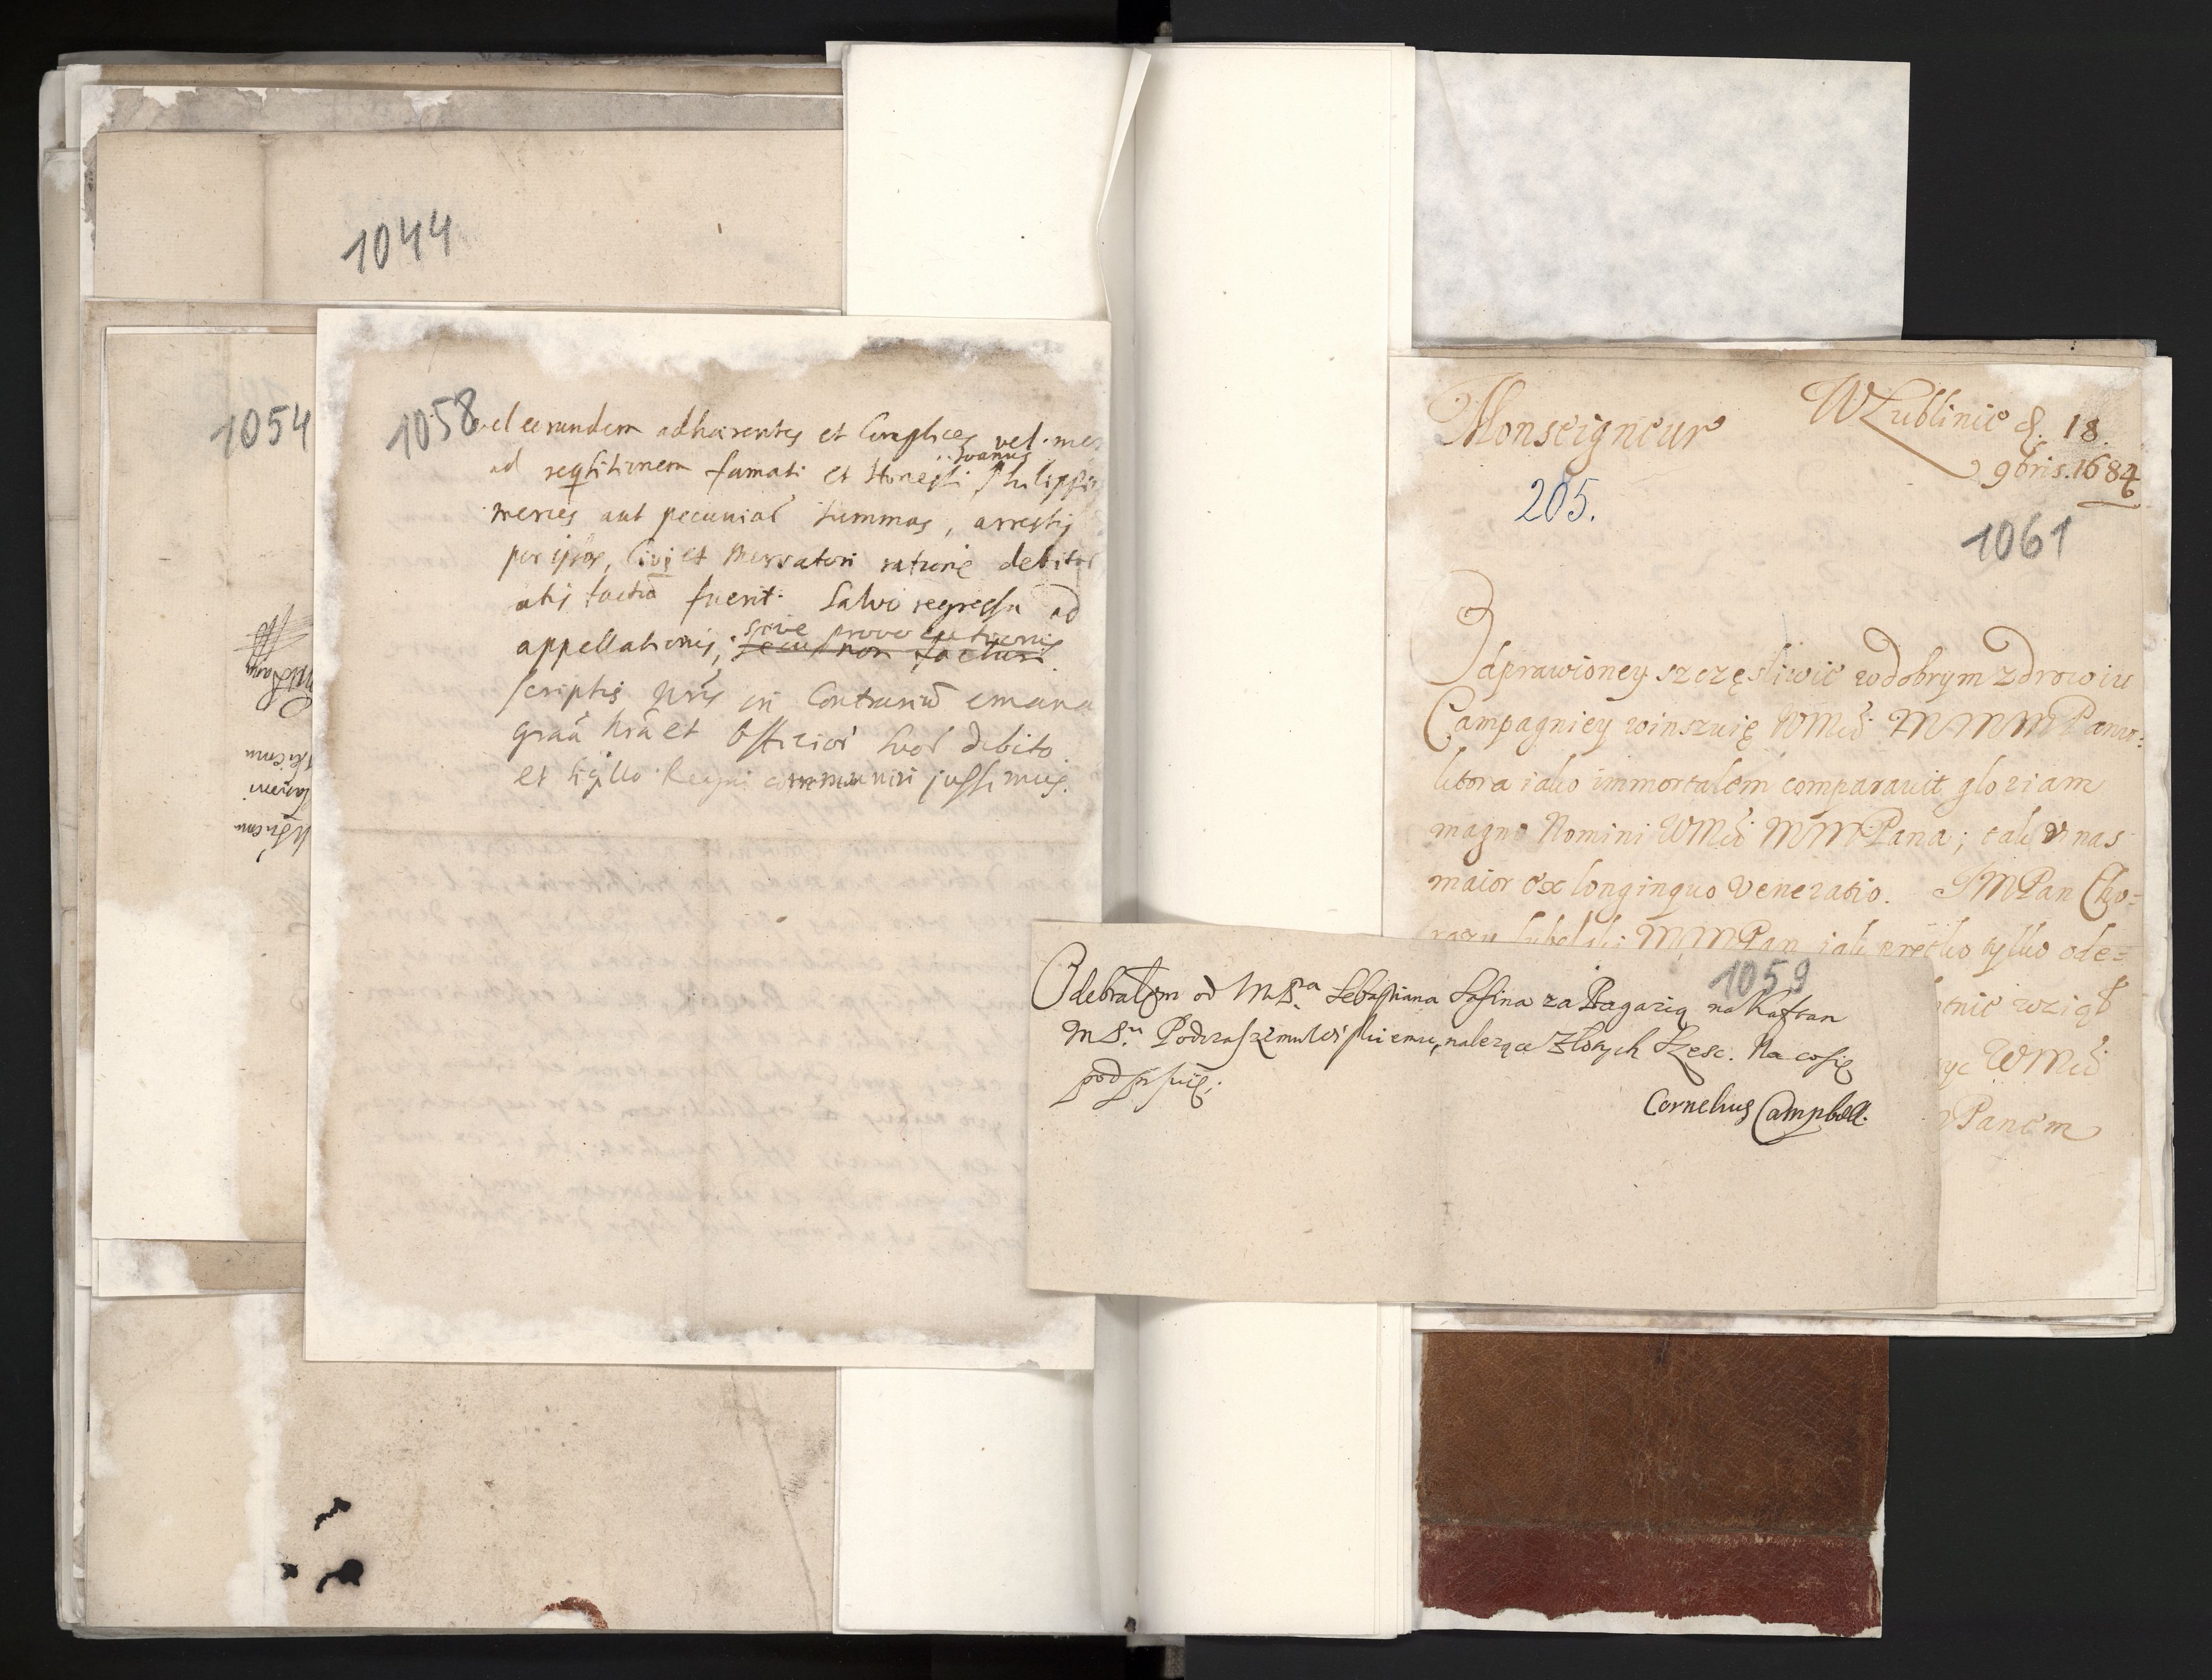 1044
1054
1058
vel eorundem adhaerentes et Complices vel
ad reqsitionem famati et Honesti Philippi
Ioannis
merces aut pecuniae summas, arrestis
per ipsos, Civi et Mercatori ratione debitor
factio fuerit. Salvo regressu ad
sive provocationis
appellationis, secus non facturi.
scriptis nris in Contrariu emana
graâ nrâ et Officior suor debito
et sigillo Regni communiri jussimus.
Monseigneur
W Lublinie d. 18.
9bris. 1684
205.
1061
Odprawioney szczęsliwie w dobrym zdrowiu
Campagniey winszuię WMći MMM Panu:
ktora iako immortalem comparavit gloriam
magno Nomini WMći MMPana; tak v nas
maior ex longinquo veneratio. JMPan Cho=
rązy Lubelski MMPan iak prętko tylko ode=
tnie wziął
WMći
Panem
1059
Odebrałem od M Pa. Sebastiana Sasina za Bagazią na Kaftan
M Pu. Podczaszemu nalezące Złotych Szesc. Na co się
podpisuię.
Cornelius Campbell.